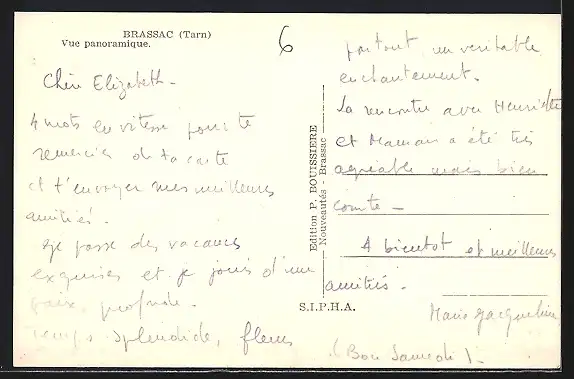 BRASSAC (Tarn)
Vue panoramique.
6
Chère Elizabeth -
4 mots en vitesse pour te
remercier de ta carte
et t'envoyer mes meilleures
amitiés.
Je passe des vacances
exquises et je jouis d'une
paix profonde.
Temps splendide, fleurs
partout, un veritable
enchantement.
La rencontre avec Henriette
et Maman a été très
agréable mais bien
courte -
A bientot et meilleures
amitiés.
Marie Jacqueline
(Bon Samedi) -
Edition P. BOUISSIERE
Nouveautés - Brassac
S.I.P.H.A.